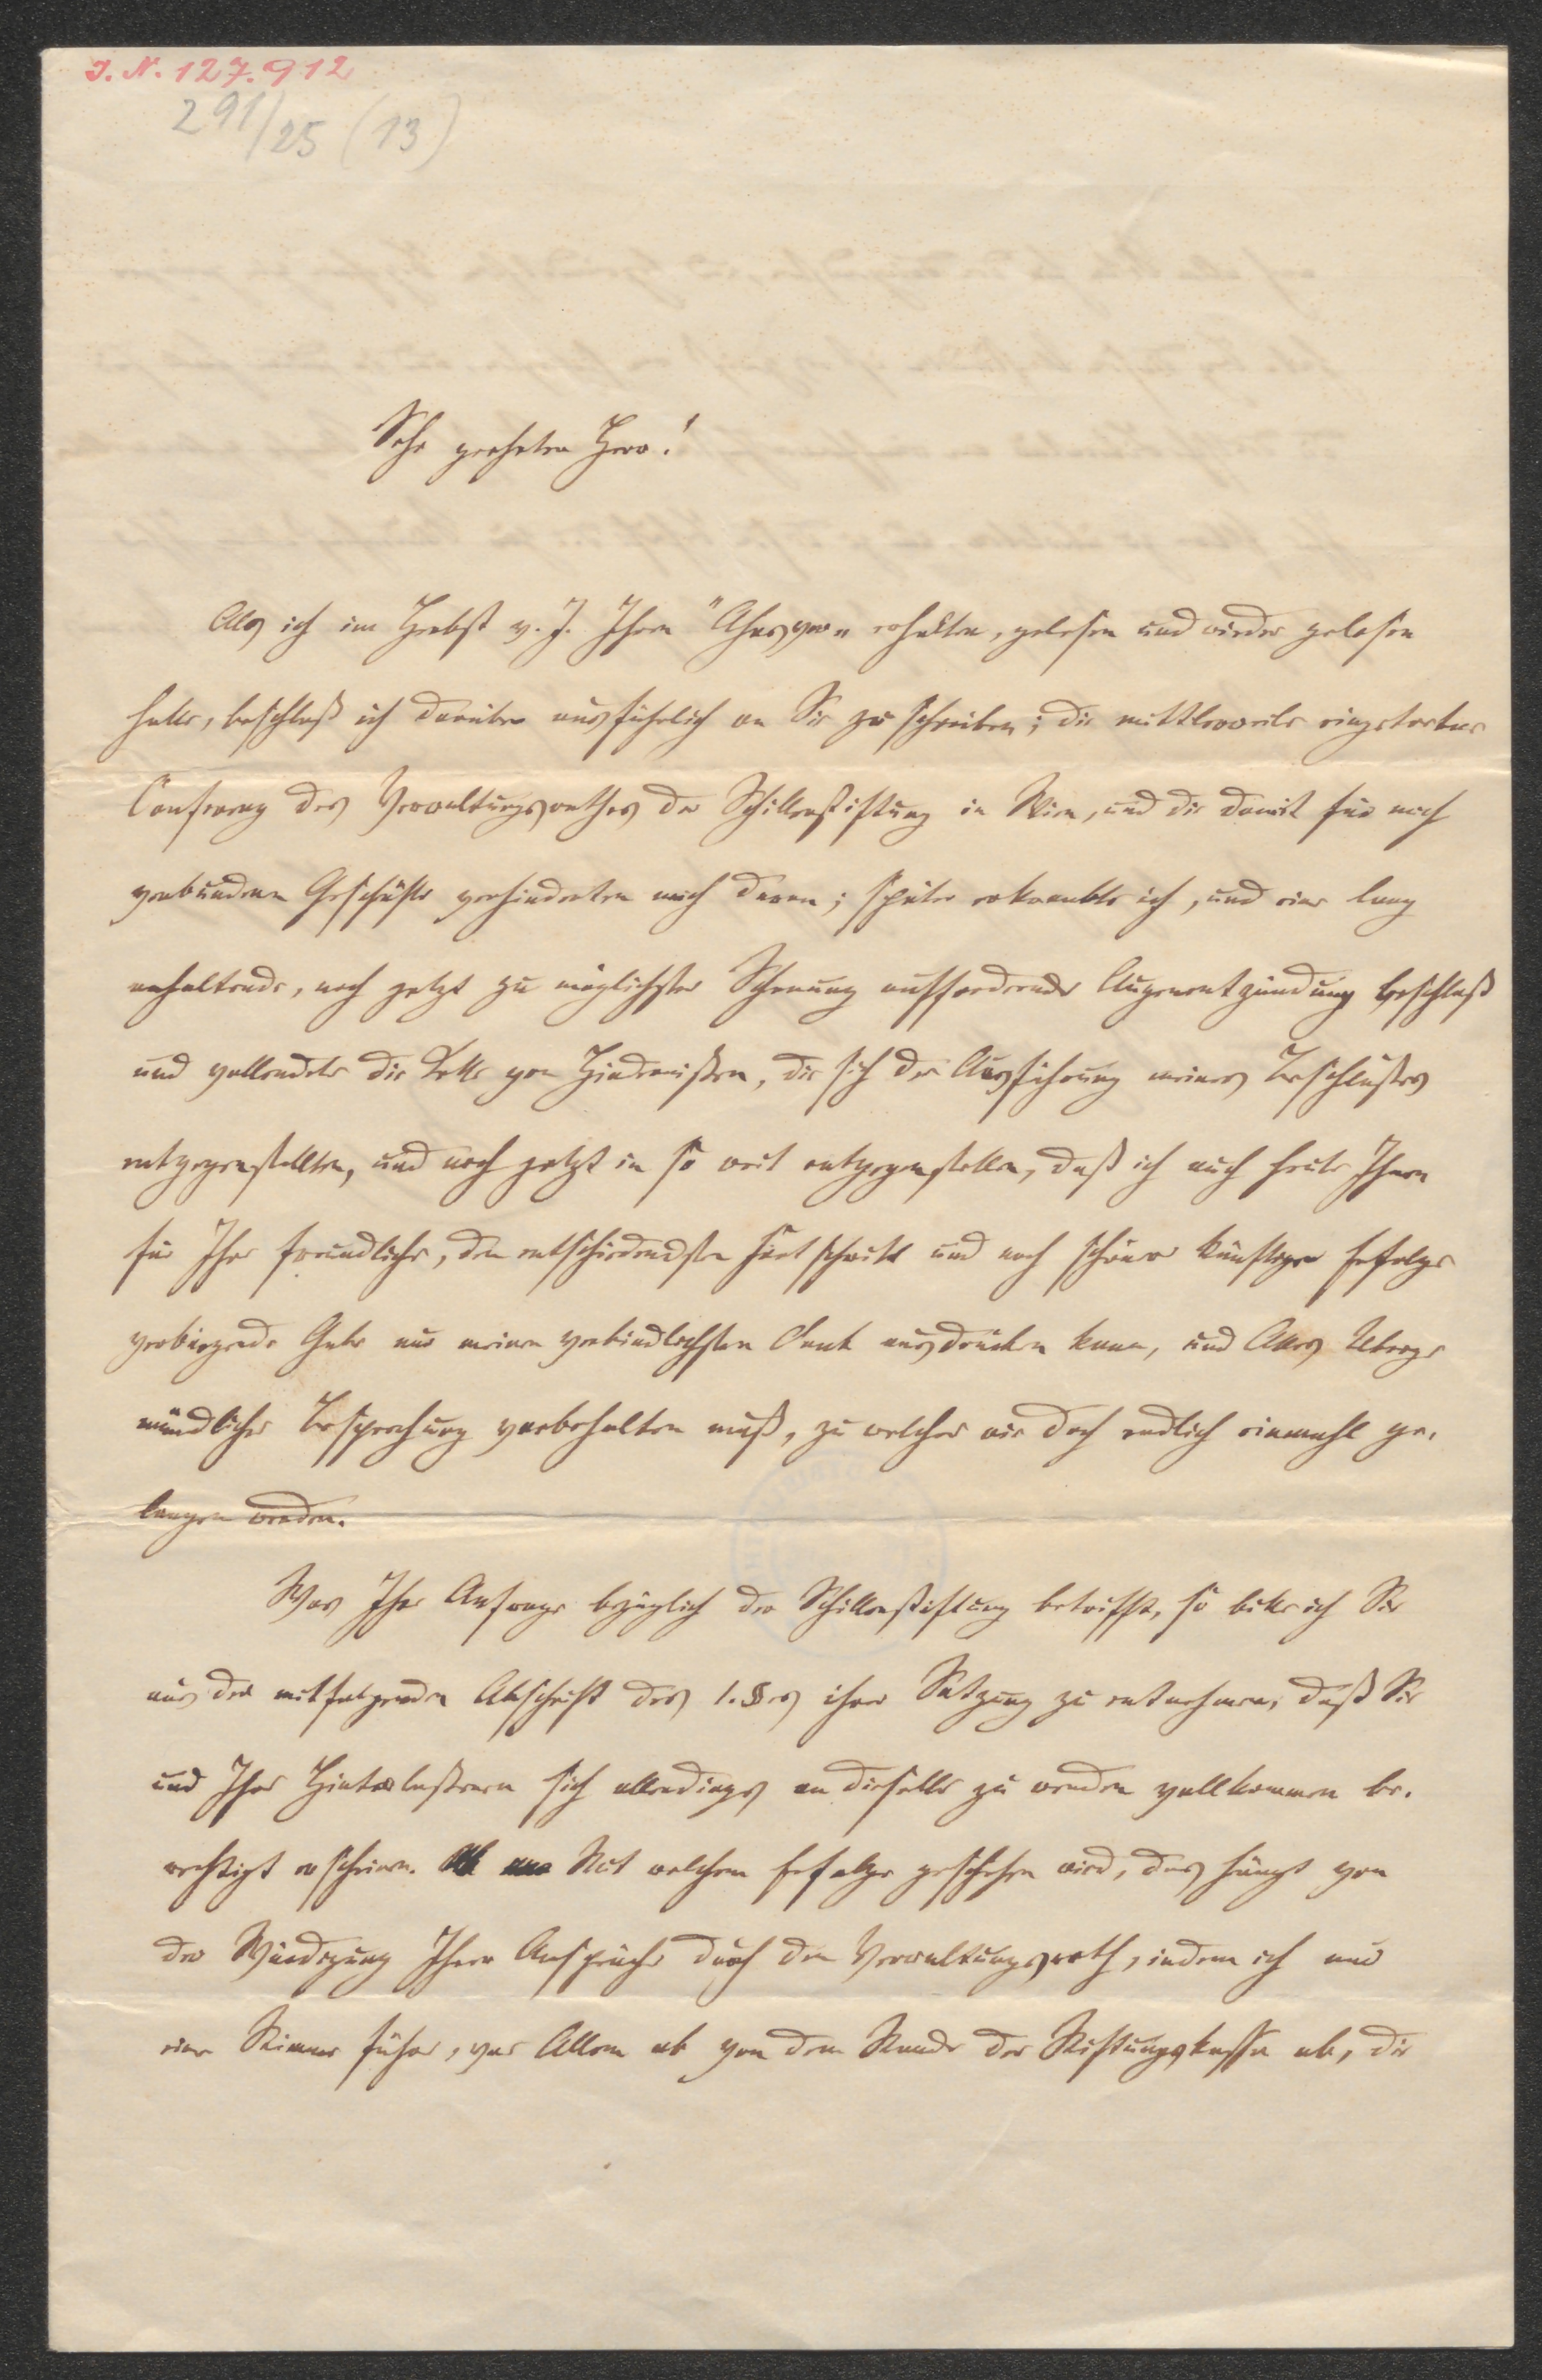 I. N. 127.912
291/25 (13)
Sehr geehrter Herr!
Als ich im Herbst v. J. Ihren "Ahasver" erhalten, gelesen und wieder gelesen
hatte, beschloß ich darüber ausführlich an Sie zu schreiben; die mittlerweile eingetretene
Conferenz des Verwaltungsrathes der Schillerstiftung in Wien, und die damit für mich
verbundenen Geschäfte verhinderten mich daran; später erkrankte ich, und eine lang
anhaltende, noch jetzt zu möglichster Schonung auffordernde Augenentzündung beschloß
und vollendete die Kette von Hindernißen, die sich der Ausführung meines Beschlußes
entgegenstellten, und noch jetzt in so weit entgegenstellen, daß ich auch heute Ihnen
für Ihre freundliche, den entschiedensten Fortschritt und noch schöner künftige Erfolge
verbürgende Gabe nur meinen verbindlichsten Dank ausdrücken kann, und Alles Uebrige
mündlicher Besprechung vorbehalten muß, zu welcher wir doch endlich einmahl ge-
langen werden.
Was Ihre Anfrage bezüglich der Schillerstiftung betrifft, so bitte ich Sie
aus der mitfolgenden Abschrift des 1. §es ihrer Satzung zu entnehmen, daß Sie
und Ihre Hinterlaßenen sich allerdings an dieselbe zu wenden vollkommen be-
rechtigt erscheinen. Mit welchem Erfolge geschehen wird, das hängt von
der Würdigung Ihrer Ansprüche durch den Verwaltungsrath, indem ich nur
eine Stimme führe, vor Allem ab von dem Stande der Stiftungskasse ab, die